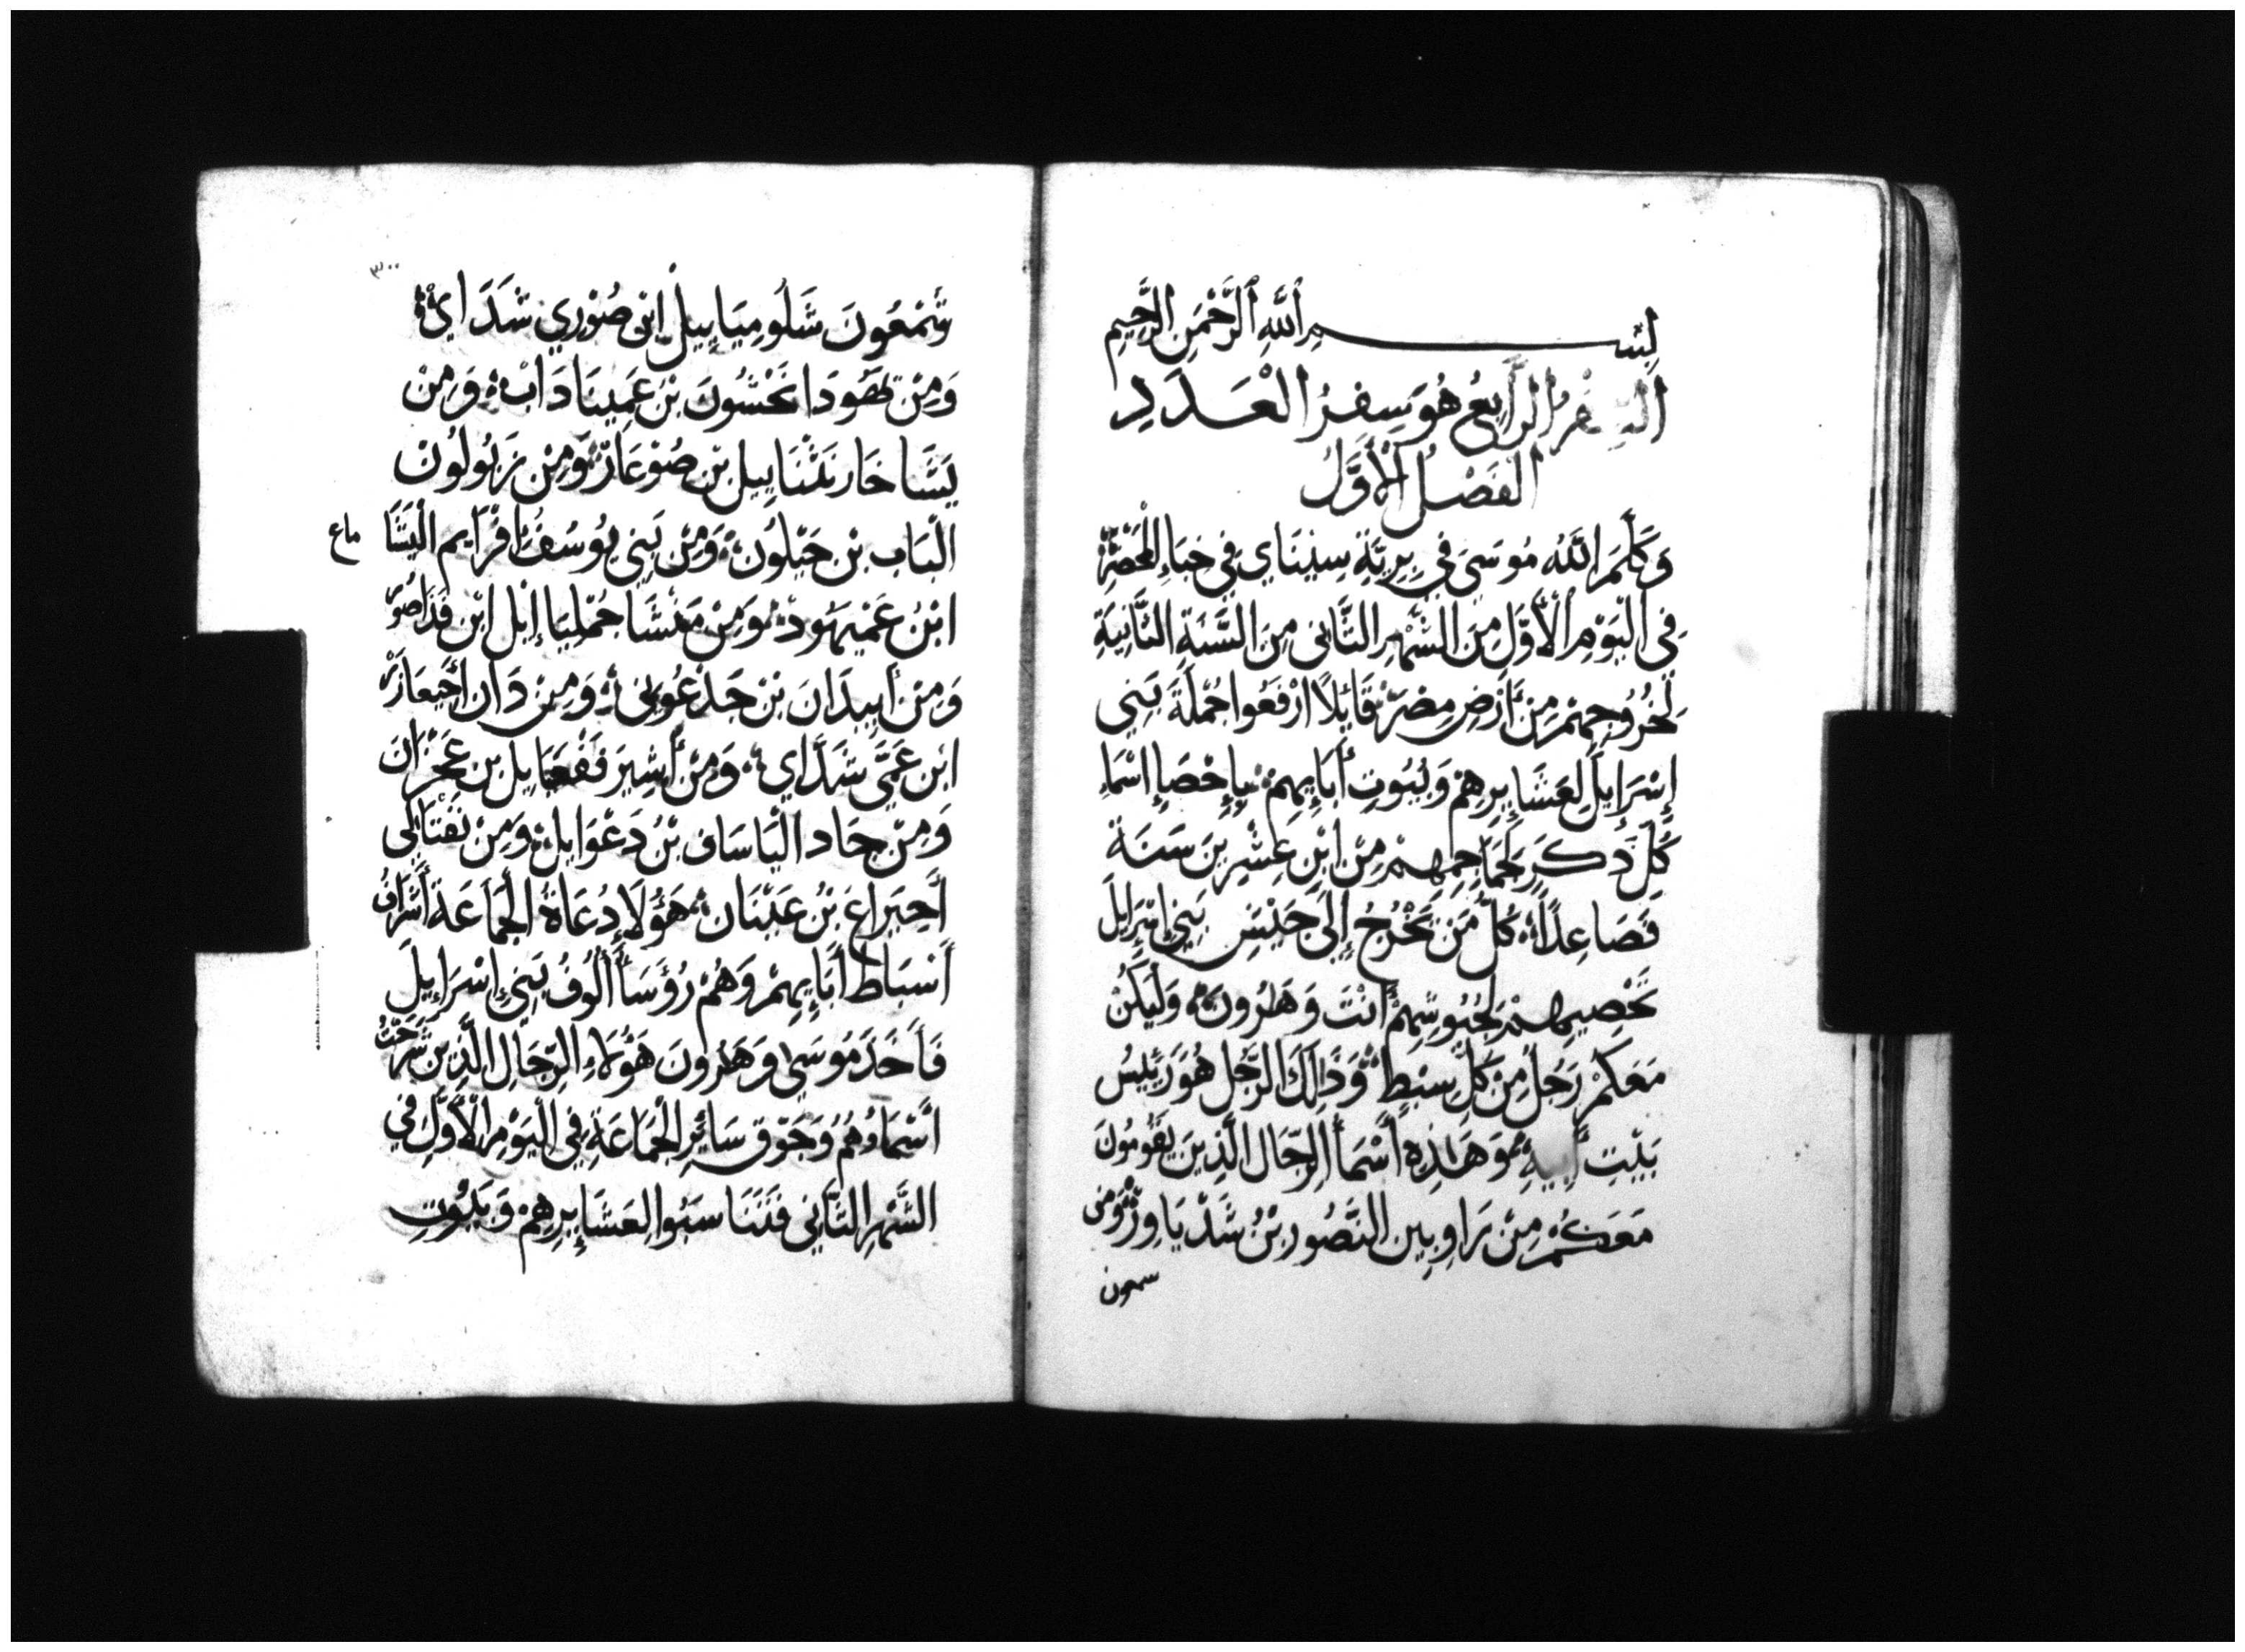 بِسْمِ ٱللَّهِ ٱلرَّحْمَنِ ٱلرَّحِيمِ
السِفْرُ الرَّابِعُ هُوَ سِفْرُ الْعَدَدِ
الفَصْلُ الْأَوَّلُ
وَكَلَّمَ اللَّهُ مُوسَى فِي بِرِيَّةِ سِينَاي فِي خِبَاءِ الْمَحْضَرِ
فِي الْيَوْمِ الْأَوَّلِ مِنَ الشَّهْرِ الثَّانِى مِنَ السَّنَةِ الثَّانِيَةِ
لِخُرُوجِهِمْ مِنْ أَرْضِ مِصْرَ قَائِلاً ارْفَعُوا جُمْلَةَ بَنِي
إِسْرَايِلَ لِعَشَايِرِهِمْ وَبُيُوتِ أَبَايِهِمْ بِإِحْصَاِ اسْمَاءِ
كُلِّ ذَكَرٍ لِجَمَاجِمِهِمْ مِنْ ابْنِ عِشْرِينَ سَنَةً
فَصَاعِداً كُلُّ مَنْ يَخْرُجُ إِلَى جَيْشِ بَنِي إِسْرَايِلَ
تَحْصِيهِمْ لِجُيُوشِهِمْ أَنْتَ وَهَرُونَ وَلْيَكُنْ
مَعَكُمْ رَجُلٌ مِنْ كُلِّ سِبْطٍ وَذَالِكَ الرَّجُل هُوَ رَئِيسُ
بَيْتِ أَبِيهِ وَهَذِهِ أَسْمَأُ الرِّجَال الَّذِينَ يَقُومُونَ
مَعَكُمْ مِنْ رَاوِبِين النَّصُور بْنُ شَدْيَاوِرْ وَمِن
سمعون
٣٠٠
شَمْعُونَ شَلُومِيَايِيلْ ابْن صُوْرِي شَدَاي
وَمِنْ يَهُودَا نَحْشُونَ بْن عَمِينَادَابْ وَمِنْ
يَشَّاخَار نَثْنَايِيل بْن صُوْعَارْ وَمِنْ زَبُولُونْ
الْيَاب بْن حَيْلُونْ وَمِنْ بَنِي يُوسُفْ افْرَايم الْيَشَا
ماع
ابْنُ عَمْيِهُودْ وَمِنْ مَنَشَّا جُمْلِيَاإِيْل ابْن فَدَاصُور
وَمِنْ أَبِيدَانَ بْن جَدْعُونِي وَمِنْ دَان أَحِيعَازَرْ
ابْن عَمِّي شَدَّاي وَمِنْ أَشِيرَ فَفْعَيَايل بن عَحْرَان
وَمِنْ جَاد الْيَاسَاف بْنُ دَعْوَايل وَمِنْ نَفْتَالِى
أَحِيَرَاع بْنُ عَيْنَان هَؤُلَاِ دُعَاةُ الْجَمَاعَة أَشْرَافُ
أَسْبَاط أَبَايِهِمْ وَهُمْ رُؤَسَأُ أُلُوفُ بَنِي إِسْرَايِيلَ
فَأَخَذَ مُوسَى وَهَرُونَ هَؤُلاَءِ الرِّجَالِ الَّذِينَ شُرِحَتْ
أَسْمَاءُهُمْ وَجَوَّق سَائِرِ الْجَمَاعَةِ فِي الْيَوْمِ الْأَوَّلِ فِي
الشَّهْرِ الثَّانِي فَتَنَاسَبُوا لِعَشَايِرِهِمْ وَبُيُوتِ